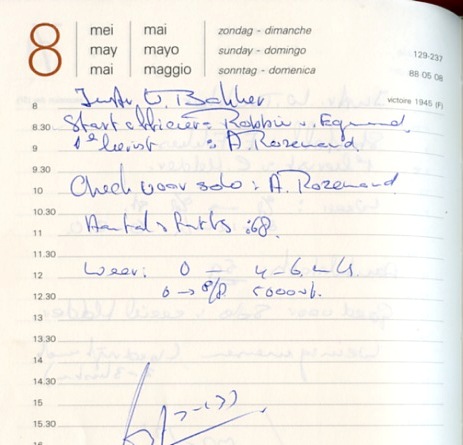 8
mei mai zondag - dimanche
may mayo sunday - domingo
mai maggio sonntag - domenica
129-237
88 05 08
victoire 1945 (F)
8 Instr. W. Bakker
8.30 Startofficier = Robbie v. Egmond
9 1e lierist : A. Rozenand
9.30
10 Check voor solo : A. Rozenand
10.30
11 Aantal starts : 68.
11.30
12 Weer: 0 — 4-6
12.30 0 → 8/8 5000vt.
13
13.30
14
14.30
15
15.30